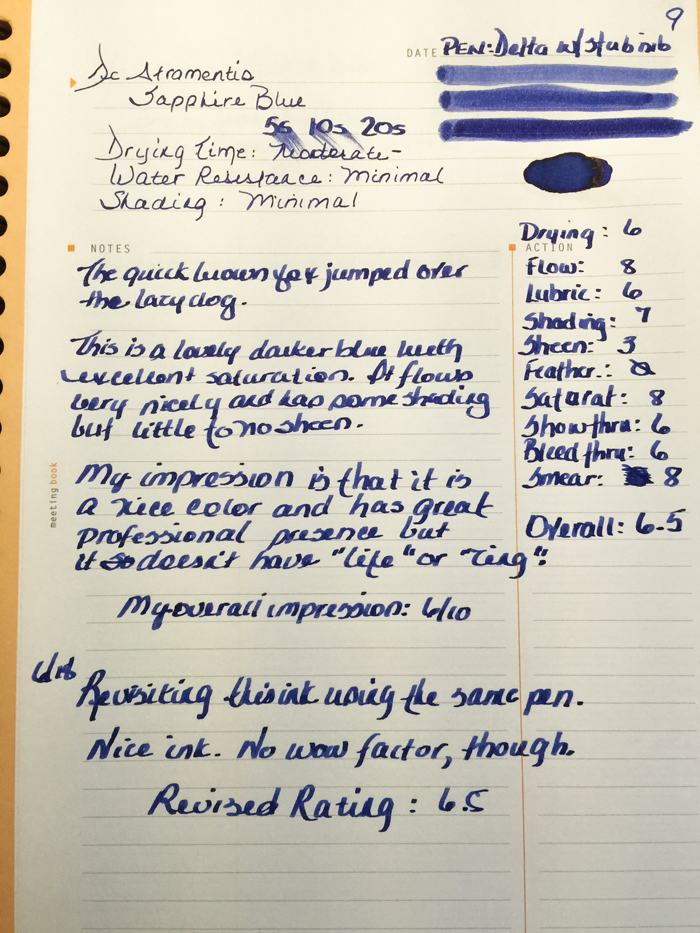 9
DATE PEN: Delta w/stub nib
De Atramentis
Sapphire Blue
5s 10s 20s
Drying Time: Moderate-
Water Resistance: Minimal
Shading: Minimal
NOTES
The quick brown fox jumped over
the lazy dog.
This is a lovely darker blue with
excellent saturation. It flows
very nicely and has some shading
but little to no sheen.
My impression is that it is
a nice color and has great
professional presence but
it so doesn't have "life" or "zing".
My overall impression: 6/10
6/18
Revisiting this ink using the same pen.
Nice ink. No wow factor, though.
Revised Rating: 6.5
ACTION
Drying: 6
Flow: 8
Lubric: 6
Shading: 7
Sheen: 3
Feather.:
Saturat: 8
Showthru: 6
Bleedthru: 6
Smear: 8
Overall: 6.5
meetingbook